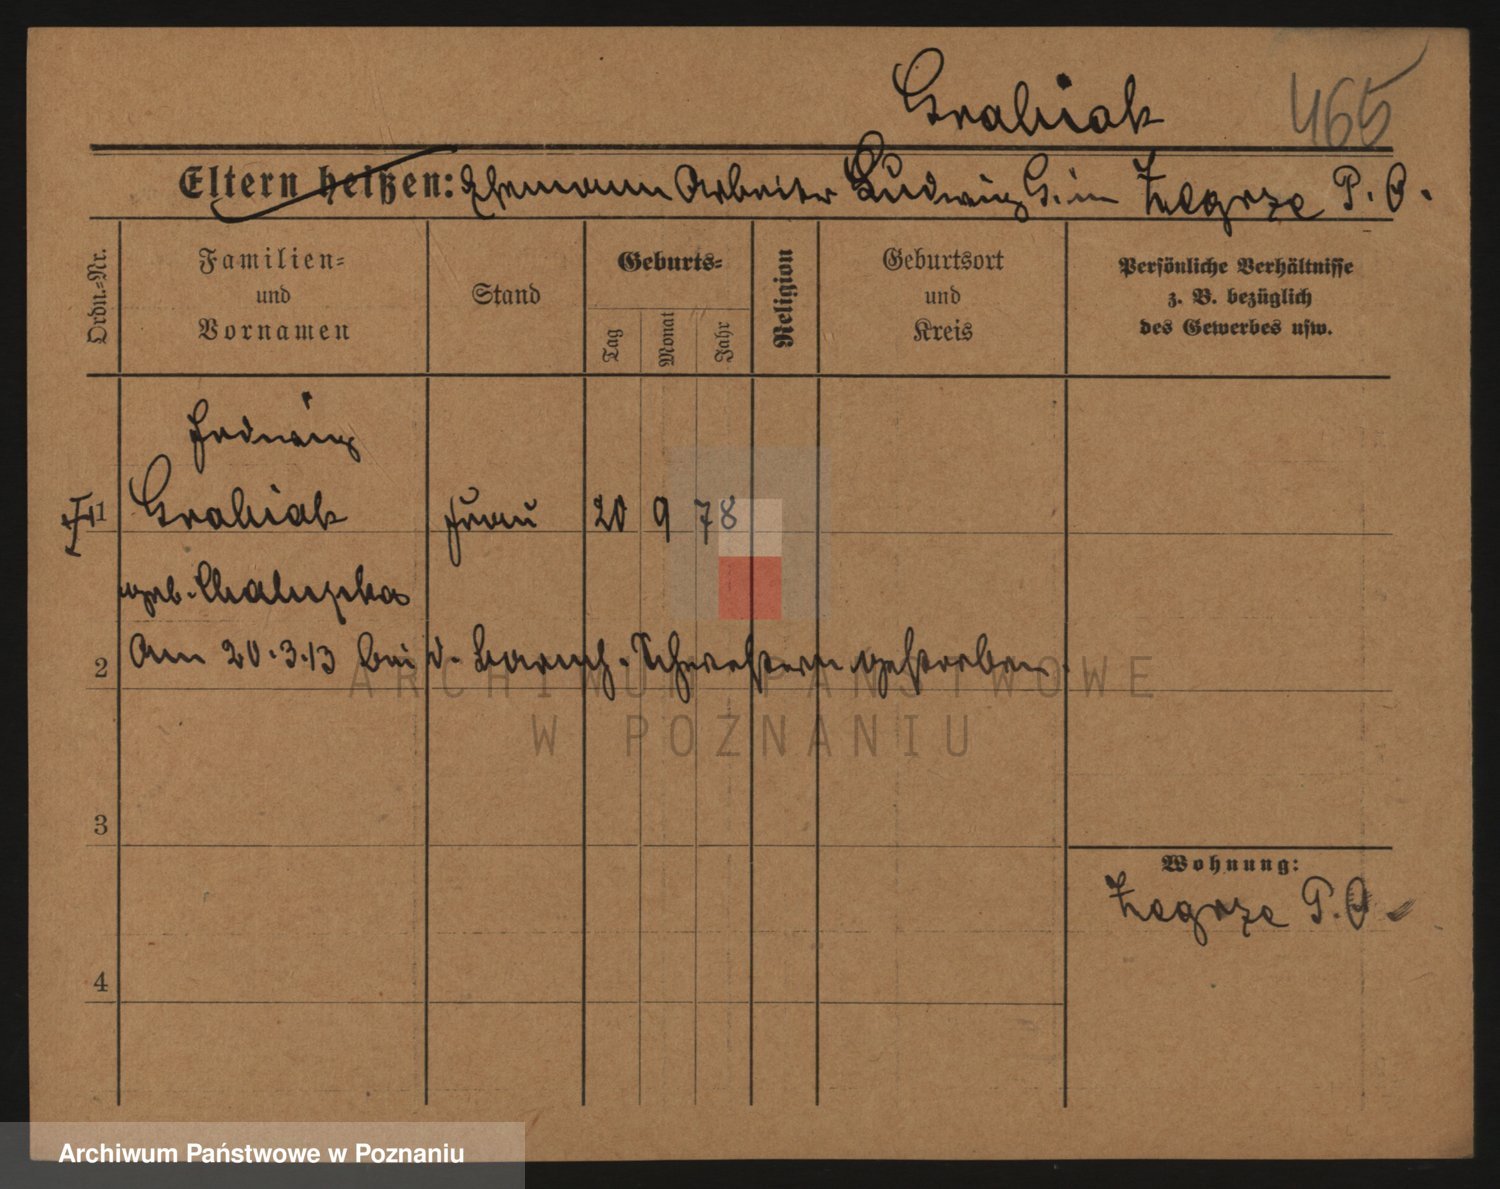 Grabiak 465
Eltern heißen: Ehemann Arbeiter Ludwig G. in Zegrze P. O.
Ordn.-Nr.
Familien-
und
Vornamen
Stand
Geburts-
Tag
Monat
Jahr
Religion
Geburtsort
und
Kreis
Persönliche Verhältnisse
z. B. bezüglich
des Gewerbes usw.
Hedwig
1 Grabiak Frau 20 9 78
geb.
2 Am 20.3.13 bei d. barmh. Schwestern gestorben.
ARCHIWUM PAŃSTWOWE
W POZNANIU
3
Wohnung:
Zegrze P. O.
4
Archiwum Państwowe w Poznaniu